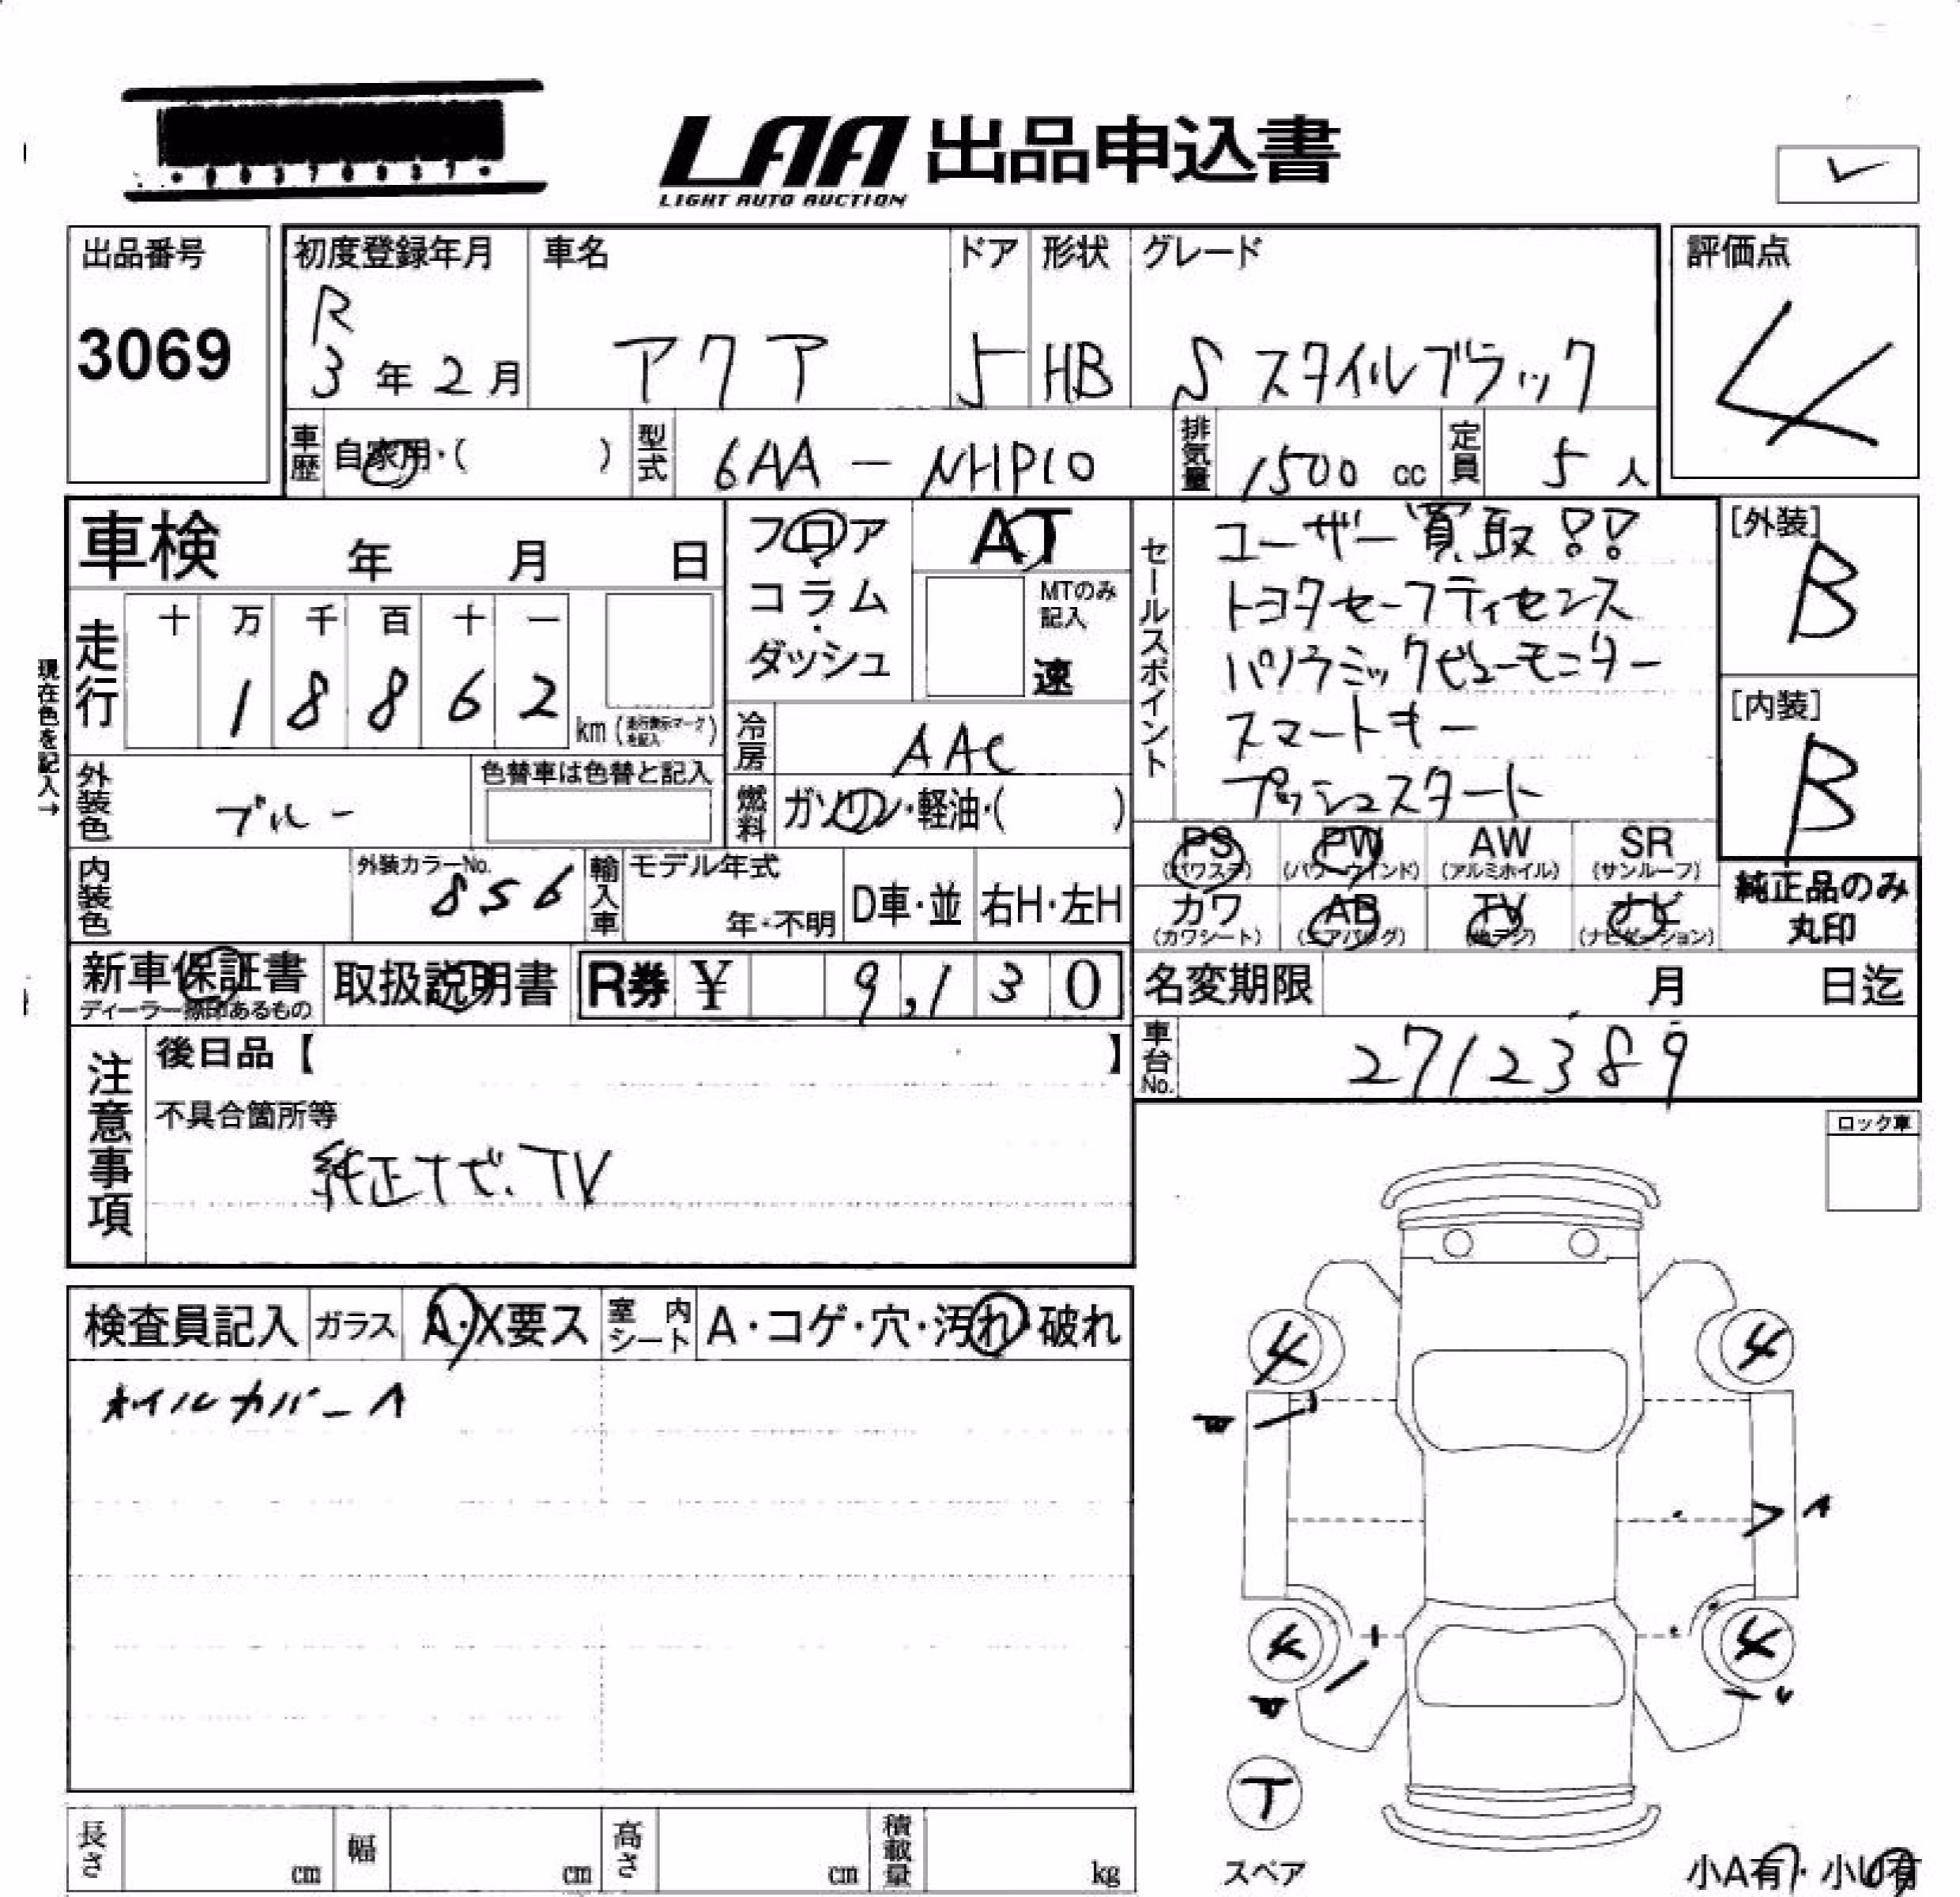 LAA 出品申込書
LIGHT AUTO AUCTION
出品番号
3069
初度登録年月
R
3年2月
車名
アクア
ドア
5
形状
HB
グレード
Sスタイルブラック
評価点
4
車歴
自家用・( )
型式
6AA-NHP10
排気量
1500 cc
定員
5人
車検 年 月 日
フロア
コラム
・
ダッシュ
AT
MTのみ
記入
速
セールスポイント
ユーザー買取!!
トヨタセーフティセンス
パノラミックビューモニター
スマートキー
プッシュスタート
[外装]
B
[内装]
B
現在色を記入→
走行
十 万 千 百 十 一
1 8 8 6 2
km(走行表示マークを記入)
冷房
AAC
外装色
ブルー
色替車は色替と記入
燃料
ガソリン・軽油・( )
内装色
外装カラーNo.
856
輸入車
モデル年式
年・不明
D車・並
右H・左H
PS
(パワステ)
PW
(パワーウインド)
AW
(アルミホイル)
SR
(サンルーフ)
カワ
(カワシート)
AB
(エアバッグ)
TV
(地デジ)
ナビ
(ナビゲーション)
純正品のみ
丸印
新車保証書
ディーラー捺印あるもの
取扱説明書
R券 ¥ 9,130
名変期限 月 日迄
車台No.
2712389
注意事項
後日品【 】
不具合箇所等
純正ナビ.TV
ロック車
検査員記入
ガラス
A・X要ス
室内シート
A・コゲ・穴・汚れ・破れ
ホイルカバーA
4
4
A
4
4
T
スペア
小A有・小U有
長さ cm
幅 cm
高さ cm
積載量 kg